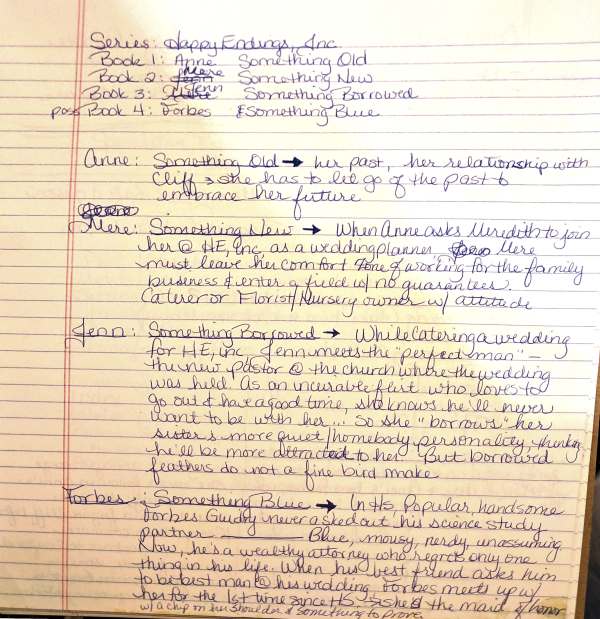 Series: Happy Endings, Inc.
Book 1: Anne Something Old
Book 2: Mere Something New
Book 3: Jenn Something Borrowed
poss Book 4: Forbes Something Blue
Anne: Something Old → her past, her relationship with
Cliff → she has to let go of the past to
embrace her future
Mere: Something New → When Anne asks Meredith to join
her @ HE, Inc as a wedding planner, Mere
must leave her comfort zone of working for the family
business & enter a field w/ no guarantees.
Caterer or Florist/Nursery owner w/ attitude
Jenn: Something Borrowed → While catering a wedding
for HE, inc, Jenn meets the "perfect man" —
the new pastor @ the church where the wedding
was held. As an incurable flirt who loves to
go out & have a good time, she knows he'll never
want to be with her... So she "borrows" her
sister's more quiet/homebody personality, thinking
he'll be more attracted to her. But borrowed
feathers do not a fine bird make
Forbes: Something Blue → In Hs, Popular, handsome
Forbes Guidry never asked out his science study
partner ________ Blue, mousy, nerdy, unassuming.
Now, he's a wealthy attorney who regrets only one
thing in his life. When his best friend asks him
to be best man @ his wedding, Forbes meets up w/
her for the 1st time since Hs. She's the maid of honor
w/ a chip on her shoulder & something to prove.